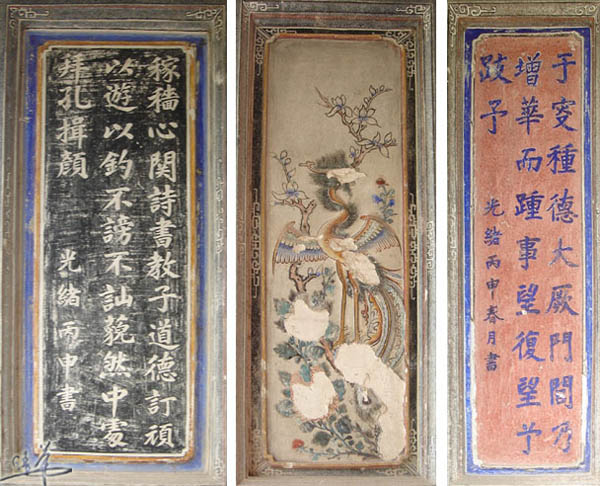 稼穡心関詩書教子道德訂頑
以遊以釣不謗不訕藐然中處
拜孔揖顏
光緒丙申書
于種德大厥門閭乃
增華而踵事望復望兮
跂予
光緒丙申春月書